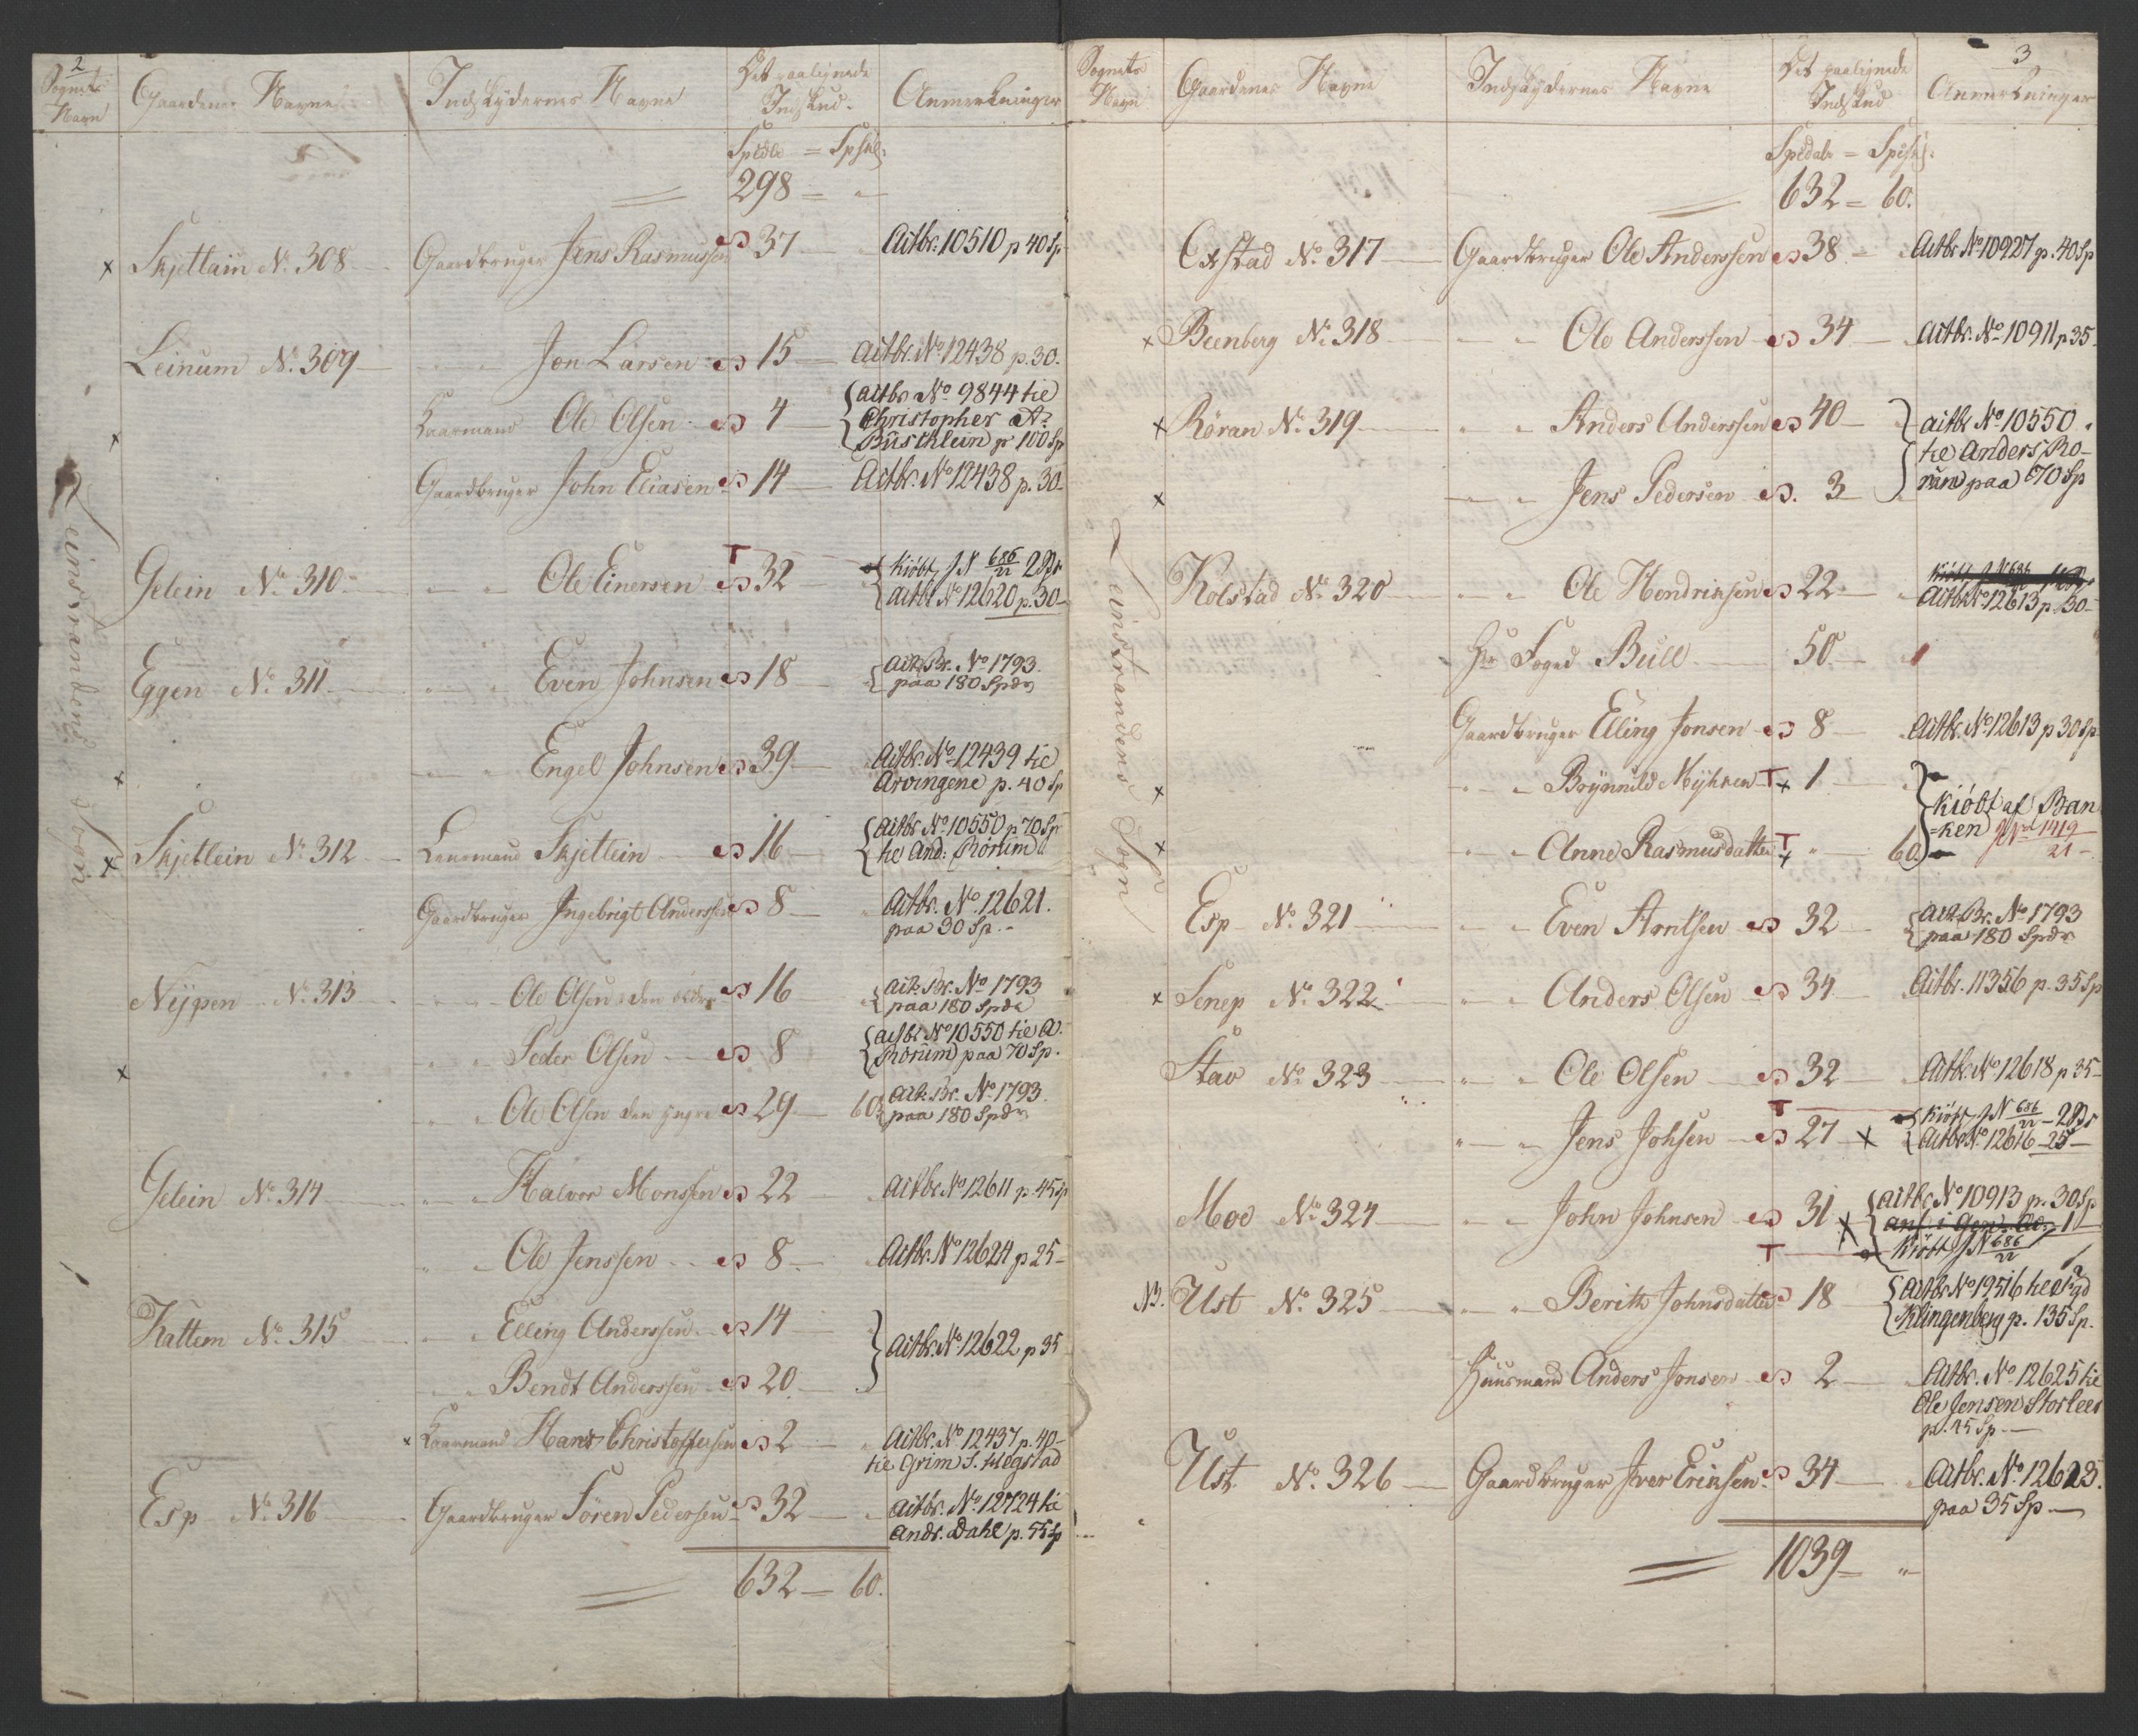 2
Sognets Navn
Gaardenes Navne
Indskydernes Navne
Det paalignede Indskud.
Anmerkninger
Spdlr = Spskl:
298 = "
Leinstrandens Sogn
x Skjettain No. 308 Gaardbruger Jens Rasmussen 37 Actbr. 10510 p 40 Sp
Leinum No. 309 " " Jon Larsen 15 Actbr. No 12438 p. 30.
Kaarmand Ole Olsen 4 actbr No 9844 til
Christopher A.
Buschlein pr 100 Sp
x
Gaardbruger John Eliasen 14 Actbr. No 12438 p. 30
Gelein No. 310 " " Ole Einersen T 32 Kiöbt J N 686/22 2
actbr No 12620 p. 30
Eggen No. 311 " " Even Johnsen 18 Act. Br. No 1793.
paa 180 Spdr
x " " Engel Johnsen 39 Actbr. No 12439 til
Arvingene p. 40 Sp
x Skjetlein No. 312 Lensmand Skjetlein 16 Actbr No 10550 p 70 Sp
til And: Rönum
Gaardbruger Ingebrigt Anderssen 8 Actbr. No. 12621.
paa 30 Sp.
Nÿpen No. 313 " " Ole Olsen den eldre 16 act. Br. No 1793
paa 180 Spdr
x " " Peder Olsen 8 actbr No 10550 til A.
Rönum paa 70 Sp.
" " Ole Olsen den yngre 29 60. Act. Br. No. 1793.
paa 180 Spdr
Gelein No. 314 " " Halvor Monssen 22 Actbr. No 12611 p. 45 Sp
" " Ole Jenssen 8 Actbr. No 12624 p 25
Kattem No. 315 " " Elling Anderssen 14
Actbr. No 12622 p 35
" " Bendt Anderssen 20
x Kaarmand Hans Christoffersen 2 Actbr. No 12437 p. 40
til Grim S. Hegstad
Esp No. 316 Gaardbruger Sören Pedersen 32 Actbr. No. 12724 til
Andr. Dahl p. 55 Sp
632 = 60.
3
Sognets Navn
Gaardenes Navne
Indskydernes Navne
Det paalignede Indskud
Anmerkninger
Spdalr = Spskl:
632 = 60.
Leinstrandens Sogn
Exstad No. 317 Gaardbruger Ole Anderssen 38 Actbr No 10927 p. 40 Sp
x Beenberg No. 318 " " Ole Anderssen 34 Actbr. No 10911 p 35
x Röran No. 319 " " Anders Anderssen 40 actbr No 10550
til Anders Rö-
ran paa 70 Sp
x " " Jens Pedersen 3
Kolstad No. 320 " " Ole Hendriksen 22 Kiöbt J N 686
Actbr No 12613 p. 30
Hr. Foged Bull 50
Gaardbruger Elling Jonsen 8 Actbr. No 12613 p 30 Sp
x " " Brÿnnild Mÿhren T x 1
Kiöbt af Ban
=ken J No 1419/21
x " " Anne Rasmusdatter T x " 60
Esp No. 321 " " Even Arntsen 32 Act. Br. No 1793
paa 180 Spdr
x Senep No. 322 " " Anders Olsen 34 Actbr. 11356 p. 35 Sp
Stav No. 323 " " Ole Olsen 32 Actbr. No 12618 p 35
" " Jens Johsen T 27 x Kiöbt J N 686/22 2
Actbr No. 12616 25
Moe No. 324 " " John Johnsen 31 x actbr No 10913 p. 30 Sp
T Kiöbt J N 686/22 1
NB. Ust No. 325 " " Berith Johnsdatter 18 Actbr No 19516 til
Klingenberg p. 135 Sp.
Huusmand Anders Jonsen 2 Actbr. No 12625 til
Ole Jensen Storlee
p. 45 Sp.
Ust No. 326 Gaardbruger Iver Eriksen 34 Actbr. No 12623.
paa 35 Sp
1039 = "